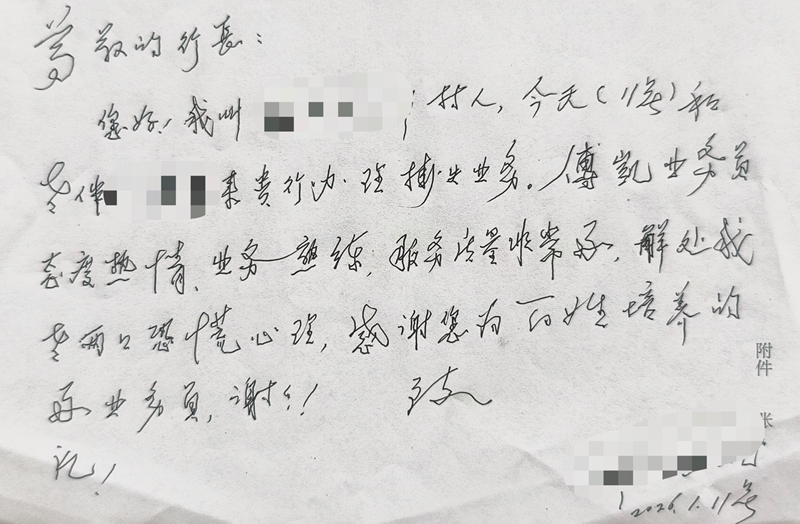 尊敬的行长：
您好！我叫 村人，今天（11号）和
老伴 来贵行办理挂失业务。傅凯业务员
态度热情、业务熟练，服务质量非常好，解处我
老两口恐慌心理，感谢您为百姓培养的
好业务员，谢谢！ 致
礼！
2026.1.11号
附件
米